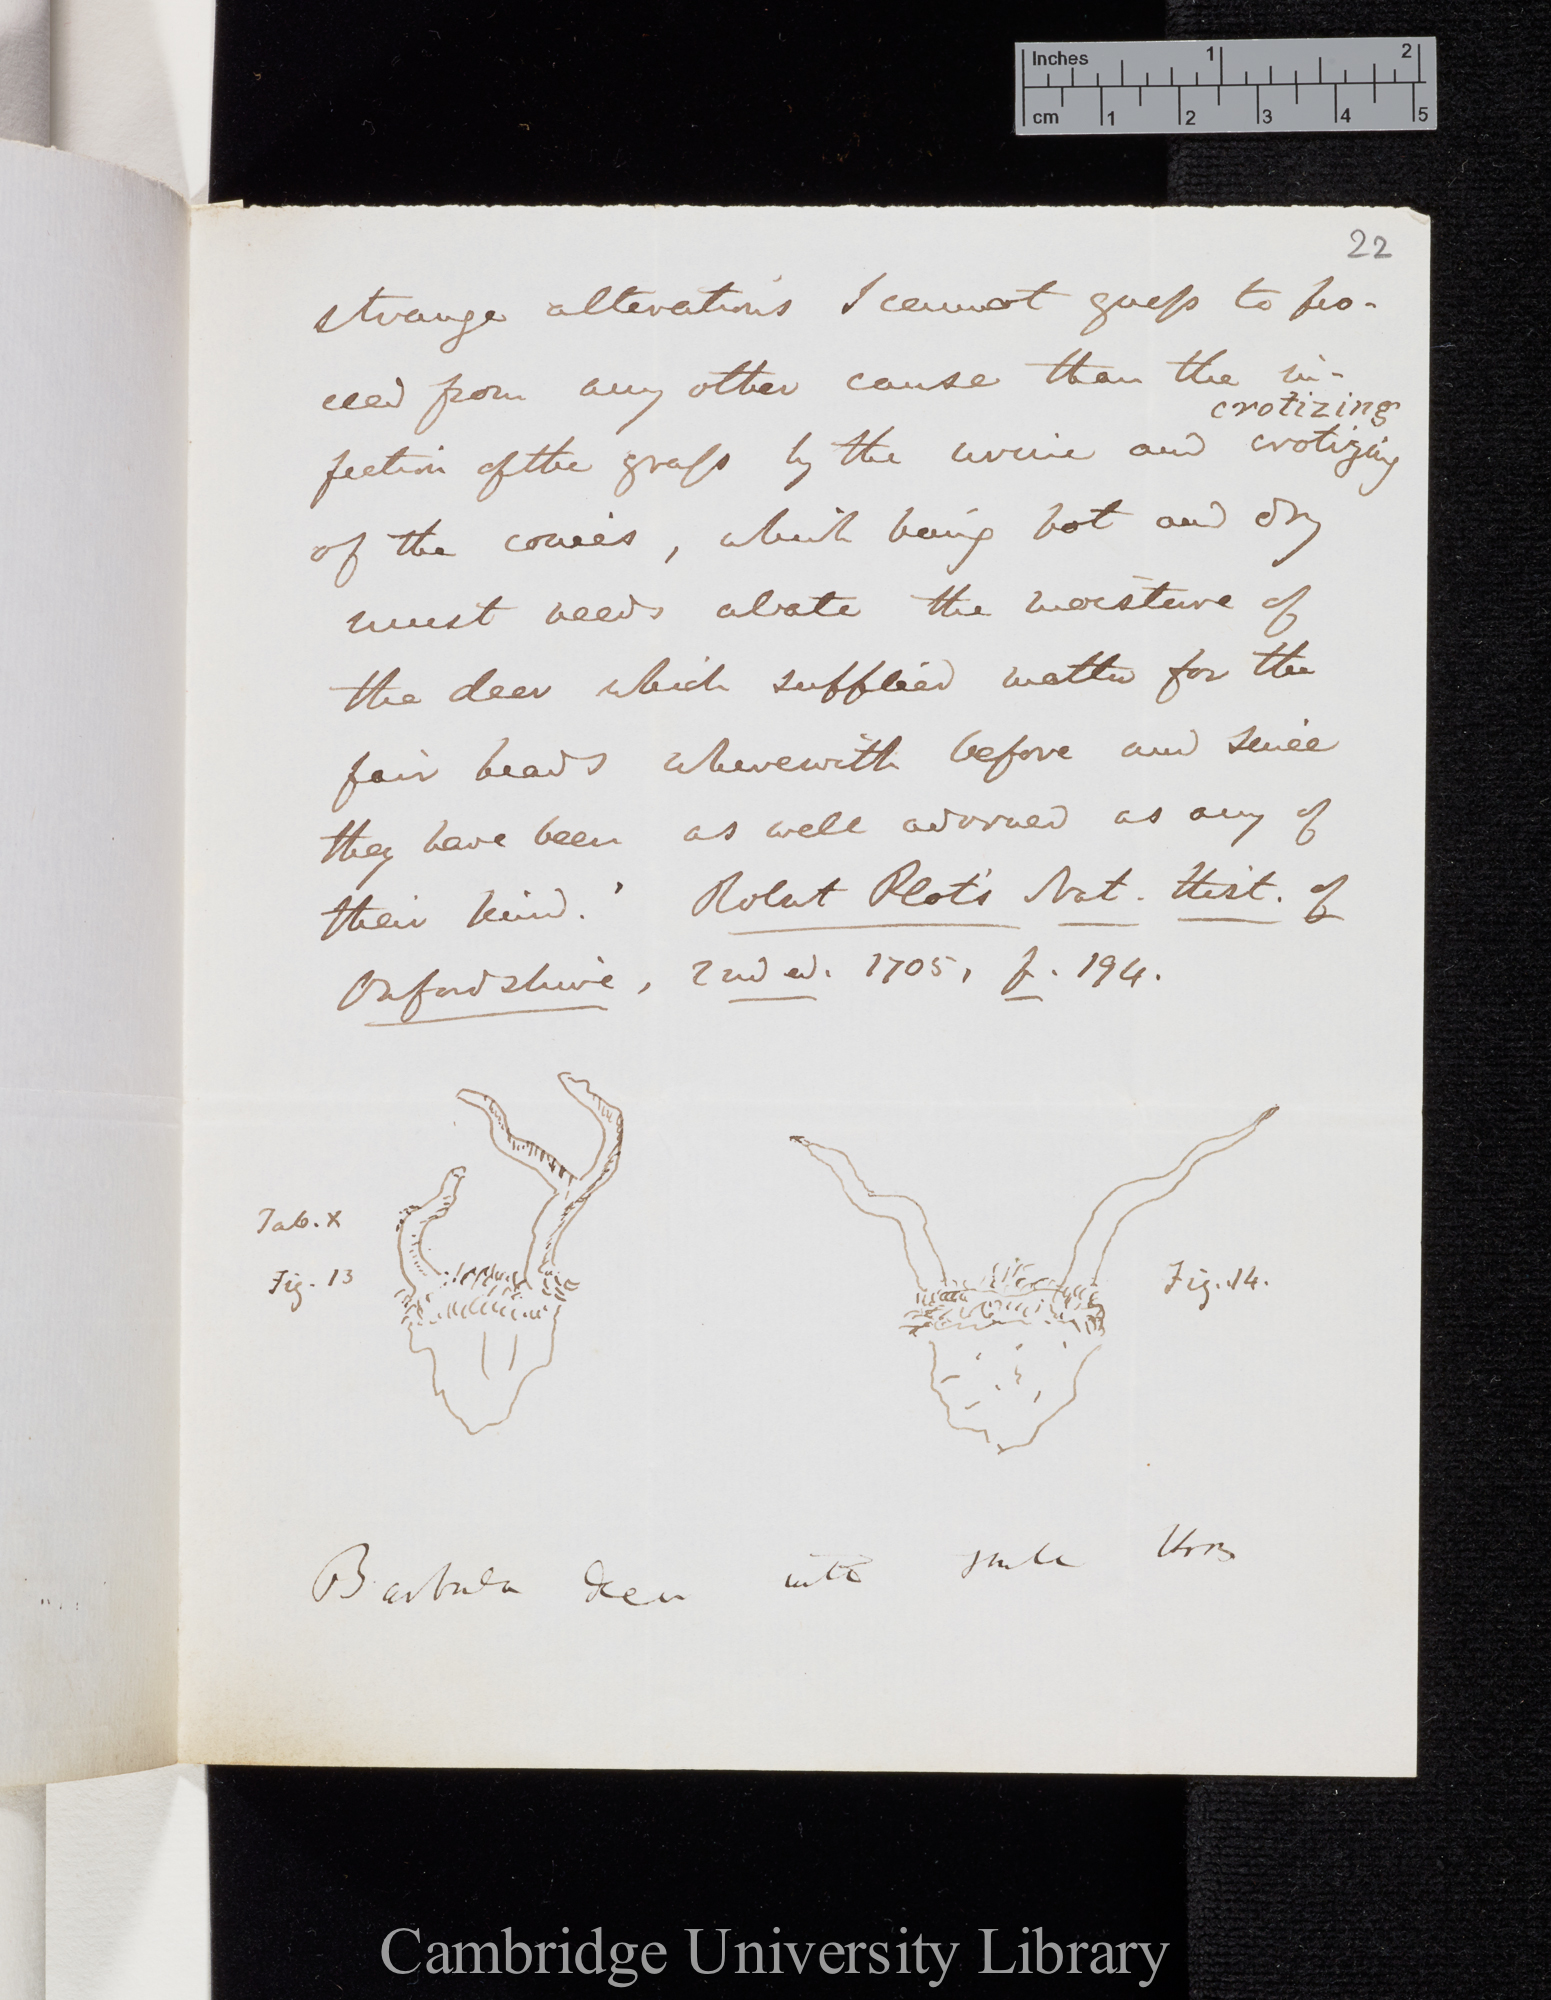 Inches 1 2
cm 1 2 3 4 5
22
strange alterations I cannot guess to pro-
ceed from any other cause than the in-
crotizing
fection of the grass by the urine and crotizing
of the conies, which being hot and dry
must needs abate the moisture of
the deer which supplied matter for the
fair heads wherewith before and since
they have been as well adorned as any of
their kind.' Robert Plot's Nat. Hist. of
Oxfordshire, 2nd ed. 1705, p. 194.
Tab. X
Fig. 13
Fig. 14.
deer with
Cambridge University Library